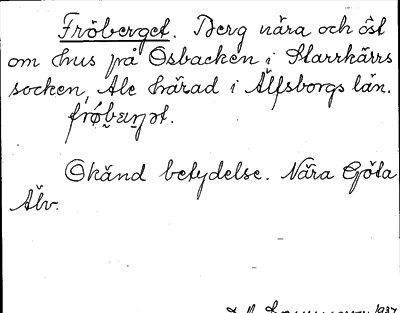 Fröberget. Berg nära och öst
om hus på Osbacken i Starrkärrs
socken, Ale härad i Älfsborgs län.
Okänd betydelse. Nära Göta
Älv.
1937